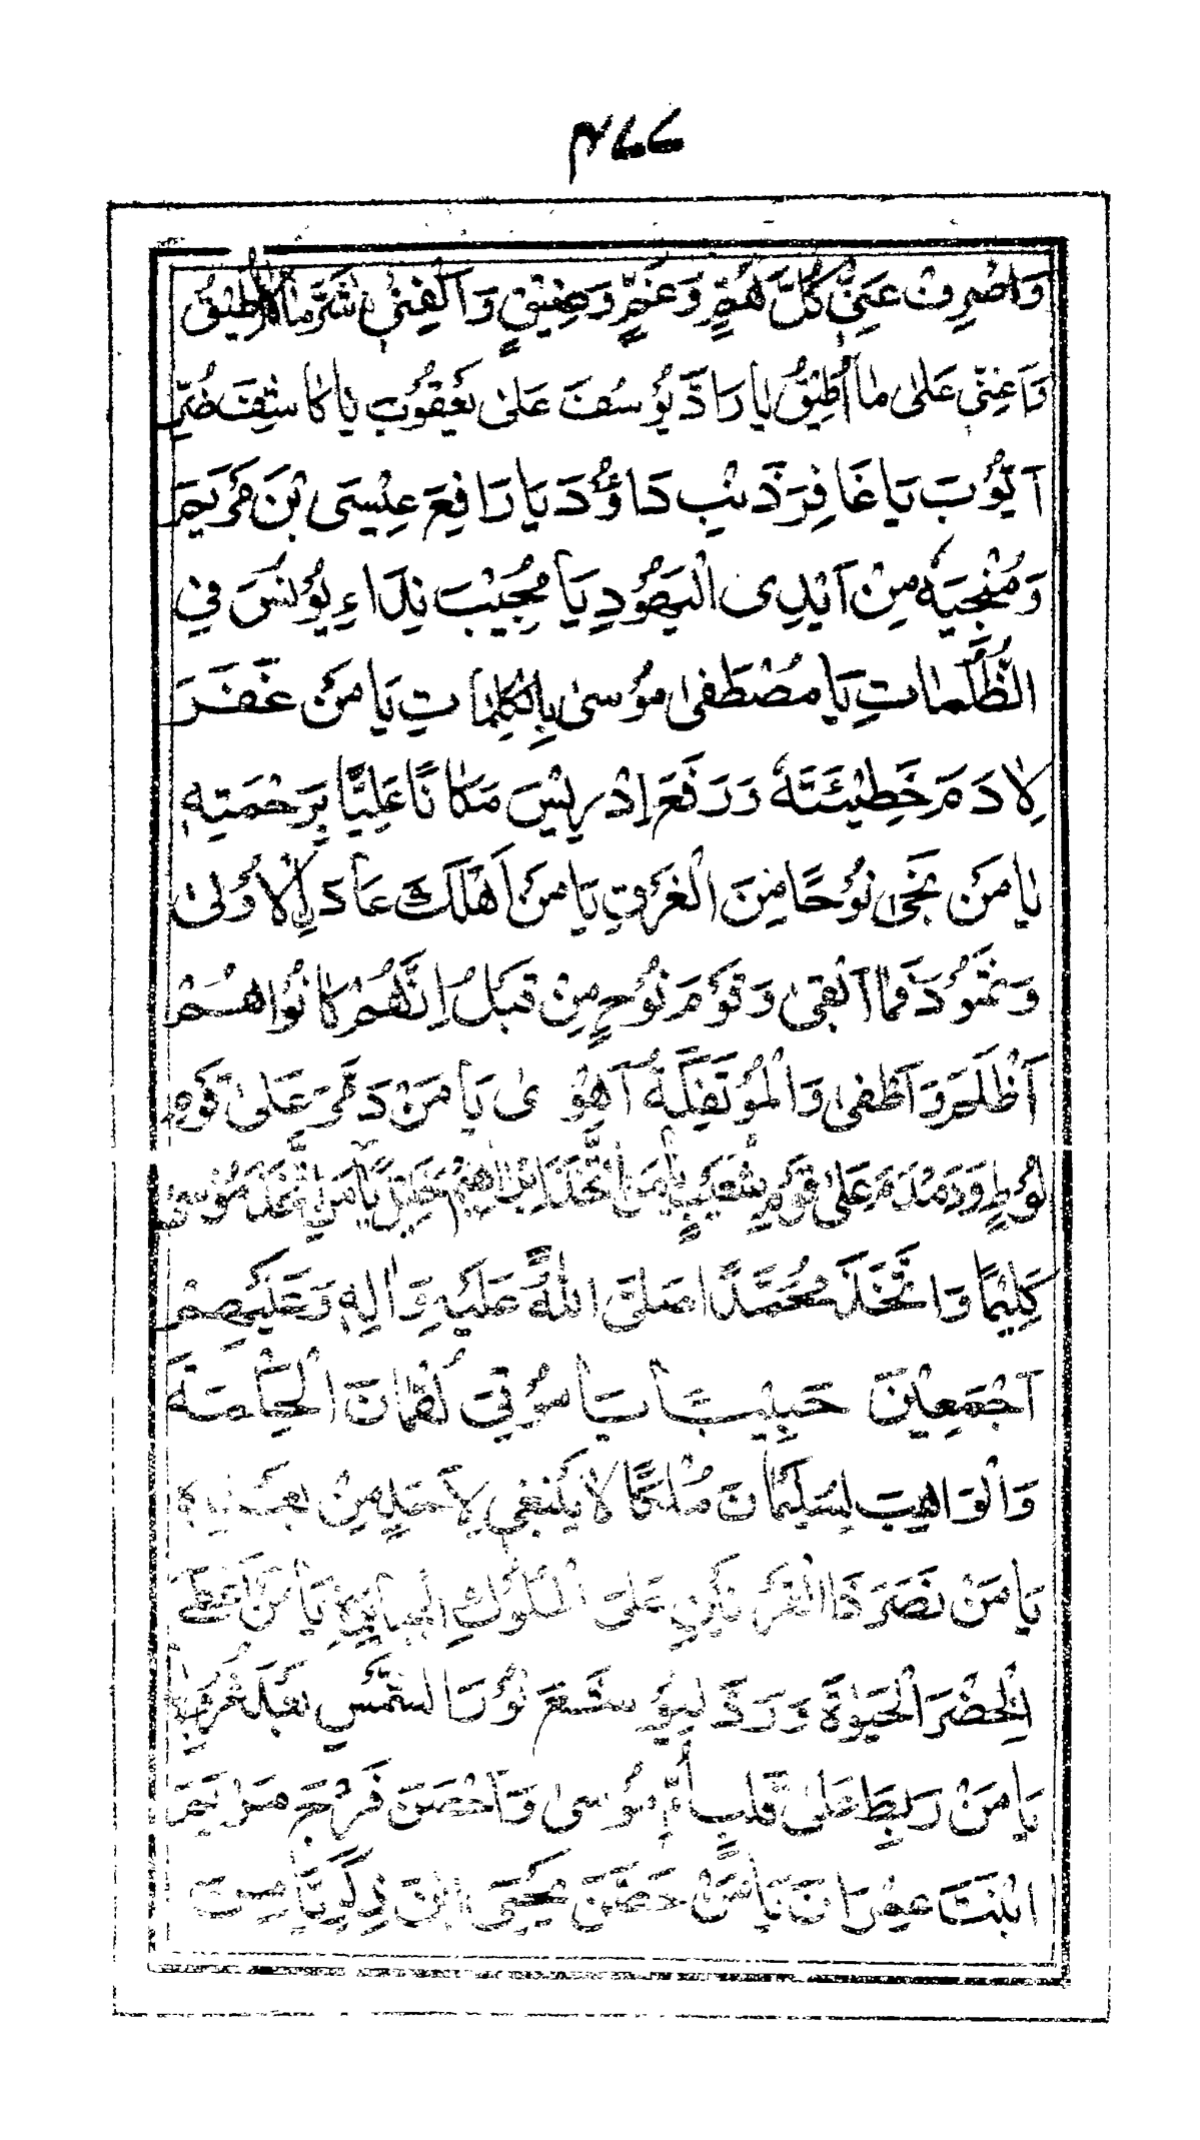 ۴۷۷
وَاصْرِفْ عَنِّیْ كُلَّ هَمٍّ وَغَمٍّ وَضِیْقٍ وَاكْفِنِیْ شَرَّ مَا لَا اُطِیْقُ
وَاَعِنِّیْ عَلٰی مَا اُطِیْقُ یَا رَادَّ یُوْسُفَ عَلٰی یَعْقُوْبَ یَا كَاشِفَ ضُرِّ
اَیُّوْبَ یَا غَافِرَ ذَنْبِ دَاوُٗدَ یَا رَافِعَ عِیْسَی بْنَ مَرْیَمَ
وَمُنْجِیَهٗ مِنْ اَیْدِی الْیَهُوْدِ یَا مُجِیْبَ نِدَاءِ یُوْنُسَ فِیْ
الظُّلُمَاتِ یَا مُصْطَفٰی مُوْسٰی بِالْكَلِمَاتِ یَا مَنْ غَفَرَ
لِاٰدَمَ خَطِیْئَتَهٗ وَرَفَعَ اِدْرِیْسَ مَكَانًا عَلِیًّا بِرَحْمَتِهٖ
یَا مَنْ نَجّٰی نُوْحًا مِنَ الْغَرَقِ یَا مَنْ اَهْلَكَ عَادَ لِالْاُوْلٰی
وَثَمُوْدَ فَمَا اَبْقٰی وَقَوْمَ نُوْحٍ مِنْ قَبْلُ اِنَّهُمْ كَانُوْا هُمْ
اَظْلَمَ وَاَطْغٰی وَالْمُؤْتَفِكَةَ اَهْوٰی یَا مَنْ دَمَّرَ عَلٰی قَوْمِ
لُوْطٍ وَدَمْدَمَ عَلٰی قَوْمِ شُعَیْبٍ یَا مَنِ اتَّخَذَ اِبْرَاهِیْمَ خَلِیْلًا یَا مَنِ اتَّخَذَ مُوْسٰی
كَلِیْمًا وَاتَّخَذَ مُحَمَّدًا صَلَّی اللّٰهُ عَلَیْهِ وَاٰلِهٖ وَعَلَیْهِمْ
اَجْمَعِیْنَ حَبِیْبًا یَا مُوْتِیَ لُقْمَانَ الْحِكْمَةَ
وَالْوَاهِبَ لِسُلَیْمَانَ مُلْكًا لَا یَنْبَغِیْ لِاَحَدٍ مِنْ بَعْدِهٖ
یَا مَنْ نَصَرَ ذَا الْقَرْنَیْنِ عَلَی الْمُلُوْكِ الْجَبَابِرَةِ یَا مَنْ اَعْطَی
الْخِضْرَ الْحَیٰوةَ وَرَدَّ لِیُوْشَعَ نُوْرَ الشَّمْسِ بَعْدَ غُرُوْبِهَا
یَا مَنْ رَبَطَ عَلٰی قَلْبِ اُمِّ مُوْسٰی وَاَحْصَنَ فَرْجَ مَرْیَمَ
ابْنَتَ عِمْرَانَ یَا مَنْ حَصَّنَ یَحْیَی ابْنَ زَكَرِیَّا مِنَ